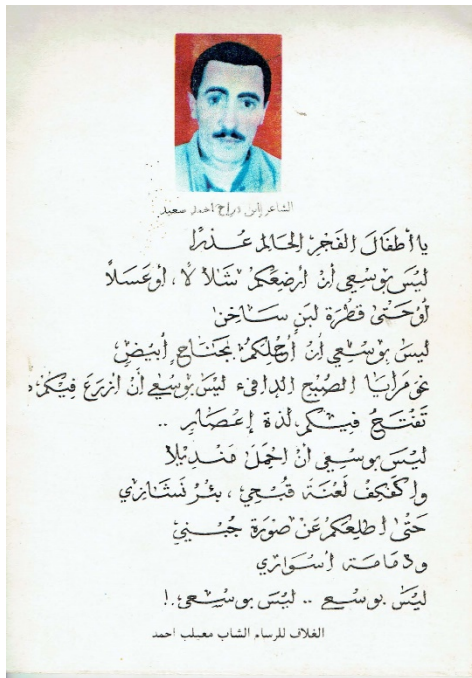 الشاعر احمد سعيد
يا أطفَالَ الفَجْرِ الحَالِم عُذْرًا
ليْسَ بوُسْعِي أنْ ارْضِعَكمْ شَلاَّ لاً، أوْ عَسَلاً
أوْ حَتَّى قطْرَة لبَنٍ سَاخِنْ
ليسَ بوُسْعِي انْ أحْملَكمُ بجَنَاحٍ أبْيَضٍ
نحْوَ مَرَايَا الصُّبْحِ الدافىء ليْسَ بوُسعِي انْ ازرَعَ فِيكمْ
تَفْتَحُ فيكم لذة إعْصَارٍ ..
ليْسَ بوُسْعِي انْ احْمِلَ مَنْدِيلاً
واكَفْكِفُ لَعْنَةَ قُبْحِي ، بئْرُ نَشَازِي
حَتَّى اطلِعَكمْ عَنْ صُورَةِ جُبْنِي
ودَمَامَة اسْوَارِي
ليْسَ بوُسْعِي .. ليْسَ بوُسْعِي !
الغلاف للرسام الشاب معيلب احمد